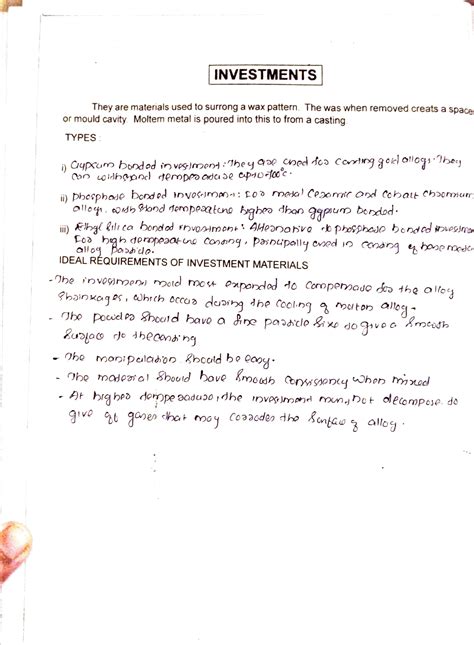 INVESTMENTS
They are materials used to surrong a wax pattern. The was when removed creats a space
or mould cavity. Moltem metal is poured into this to from a casting.
TYPES :
i) Gypsum bonded investment: They are used for casting gold alloys. They
can withstand temperature upto
ii) phosphate bonded investment: For metal ceramic and cobalt chromium
alloys. withstand temperature higher than gypsum bonded.
iii) Ethyl silica bonded investment: Alternative to phosphate bonded investment
for high temperature casting, principally used in casting of base metal
alloy
IDEAL REQUIREMENTS OF INVESTMENT MATERIALS
- The investment mold must expanded to compensate for the alloy
shrinkages, which occur during the cooling of molten alloy.
- The powder should have a fine particle size to give a smooth
surface to the casting
- The manipulation should be easy.
- The material should have smooth consistency when mixed
- At higher temperature, the investment must not decompose to
give of gases that may corrodes the surface of alloy.